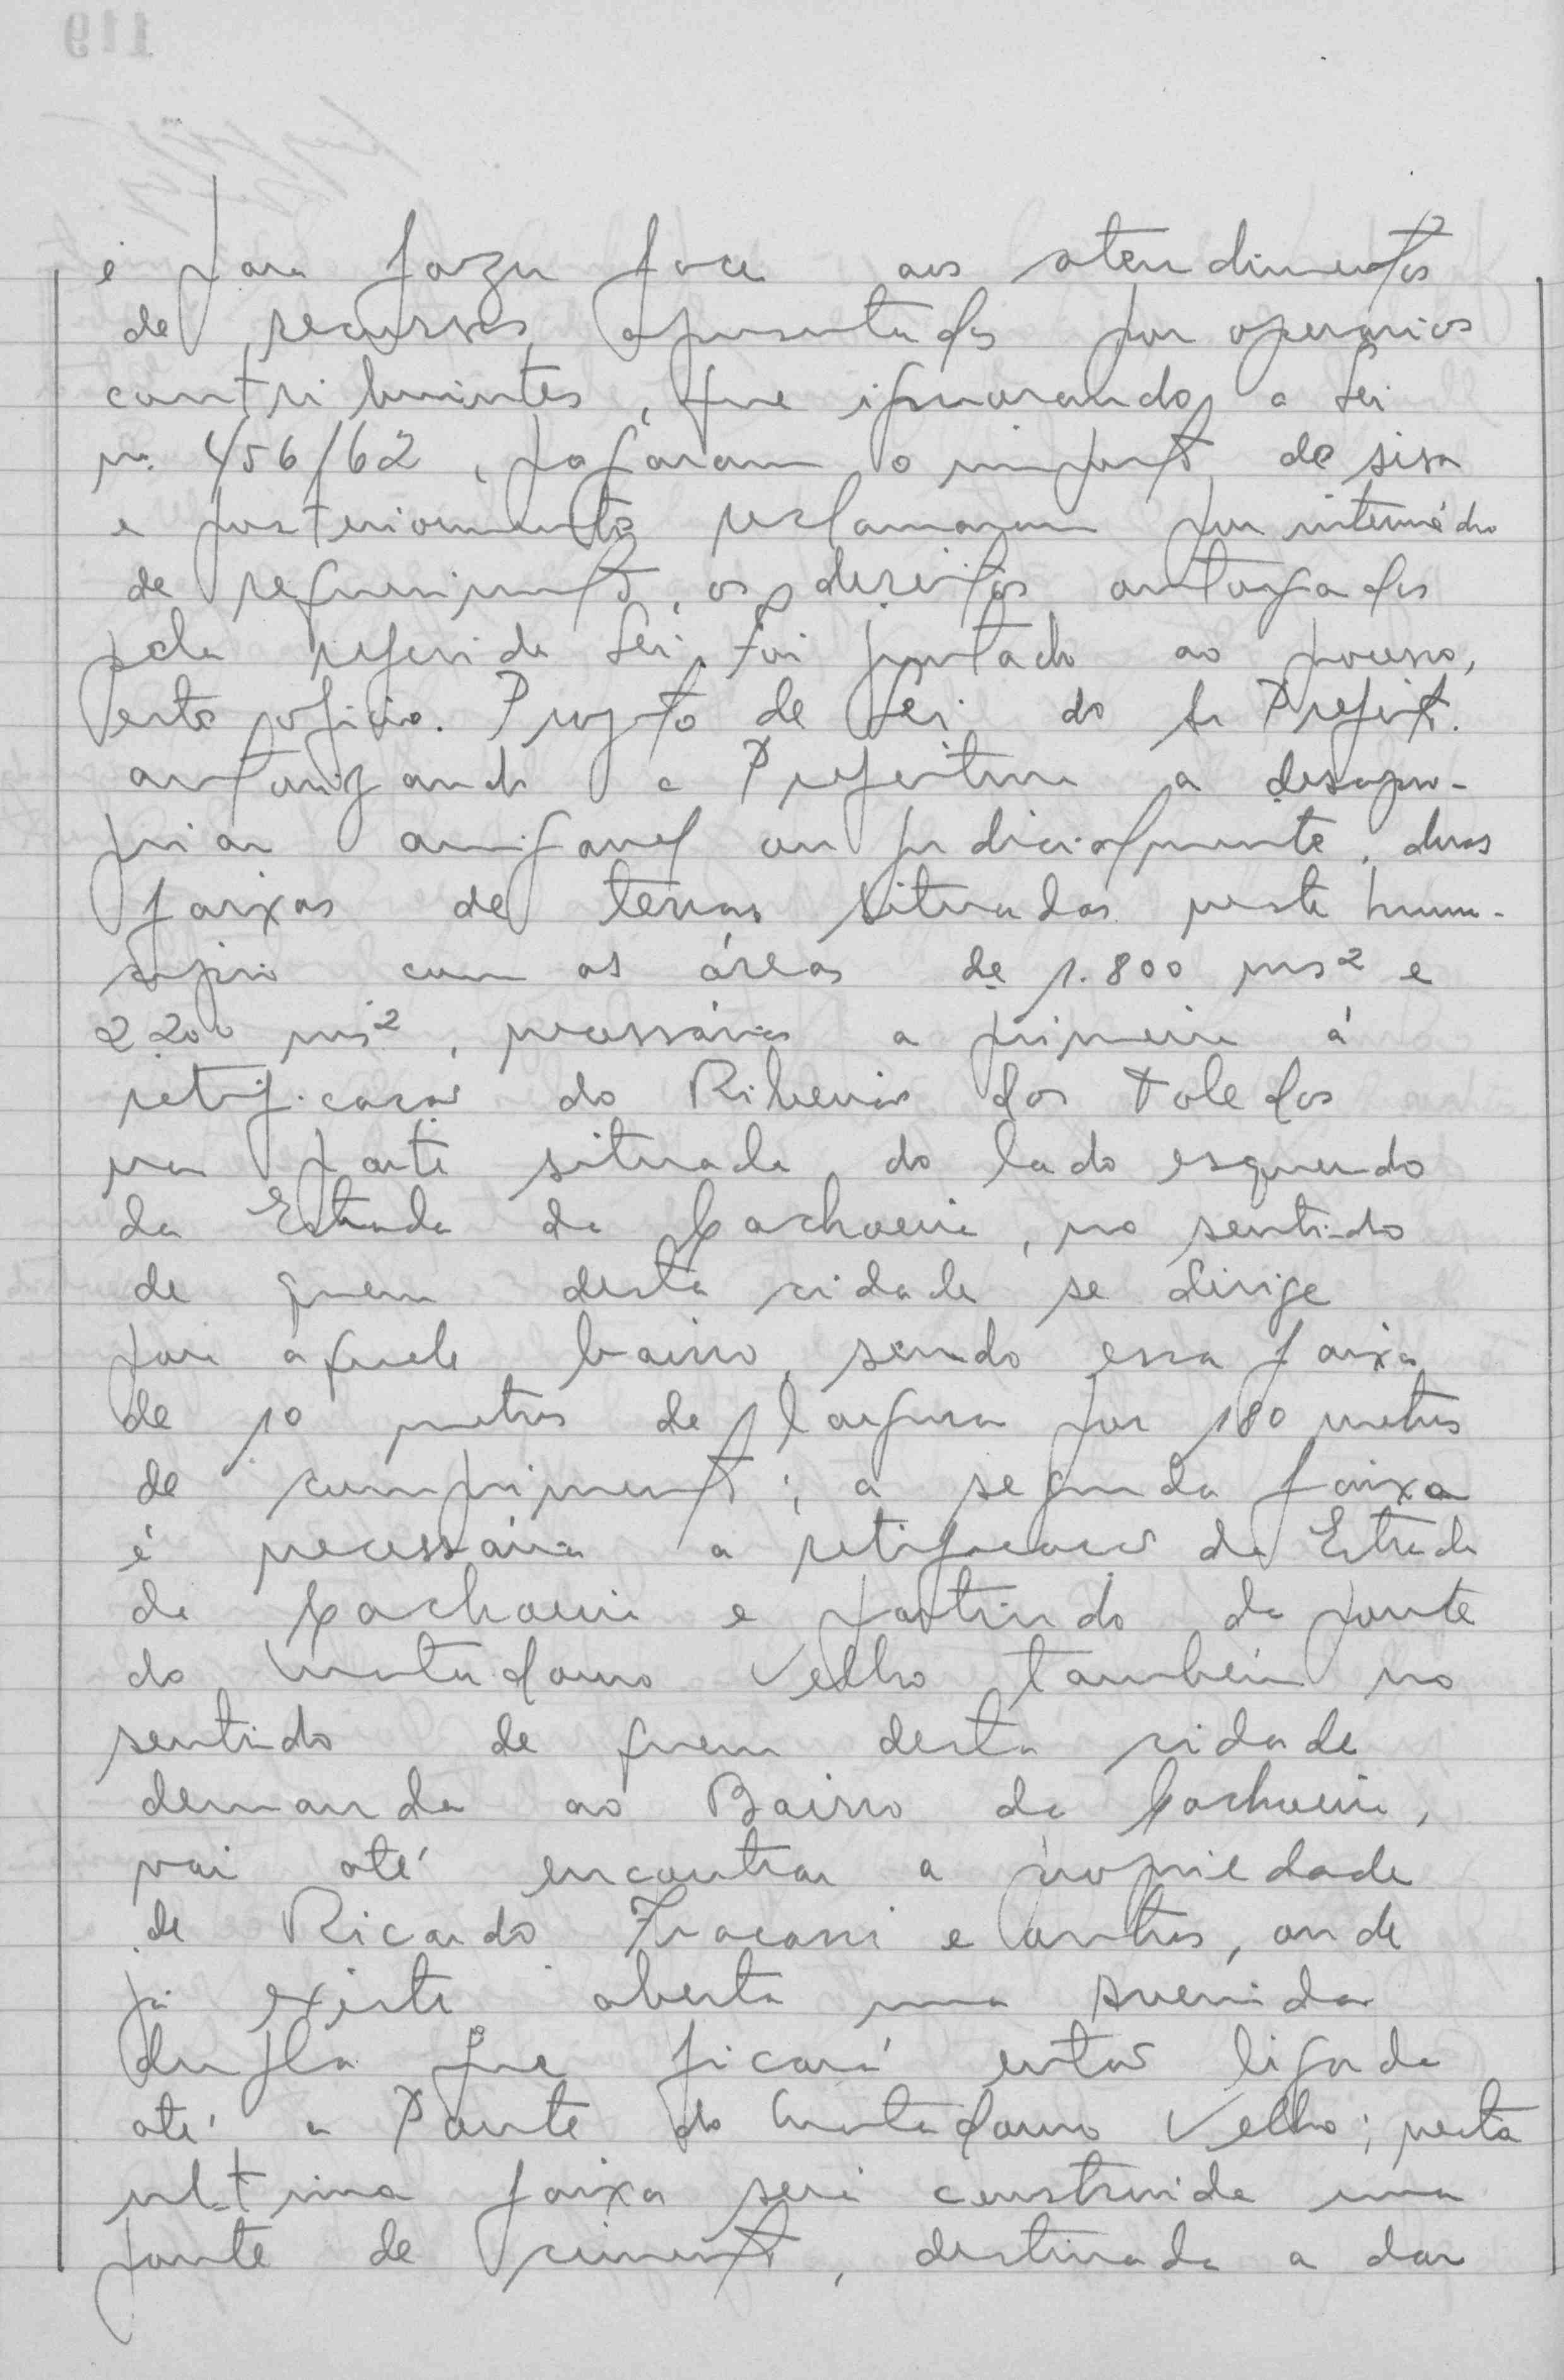 é para fazer face aos atendimentos
de recursos apresentados por operarios
contribuintes, que ignorando a Lei
nº 456/62, pagaram o imposto de sisa
e posteriormente reclamaram por intermédio
de requerimento, os direitos outorgados
pela referida Lei. Foi juntado ao processo,
este oficio. Projeto de Lei do Sr Prefeito.
autorizando a Prefeitura a desapro-
priar amigavel ou judicialmente, duas
faixas de terras situadas neste muni-
cipio com as áreas de 1.800 ms² e
2200 ms², necessárias a primeira á
retificacao do Ribeirão dos Toledos
na parte situada do lado esquerdo
da Estrada da Cachoeira, no sentido
de quem desta cidade se dirige
para aquele bairro, sendo essa faixa
de 10 metros de largura por 180 metros
de comprimento; a segunda faixa
é necessária a retificacao da Estrada
da Cachoeira e partindo da ponte
do Matadouro Velho também no
sentido de quem desta cidade
demanda ao Bairro da Cachoeira,
vai até encontrar a propriedade
de Ricardo Fracassi e outros, onde
já existe aberta uma avenida
dupla que ficará entao ligada
até a Ponte do Matadouro Velho; nesta
ultima faixa será construida uma
ponte de cimento, destinada a dar
119